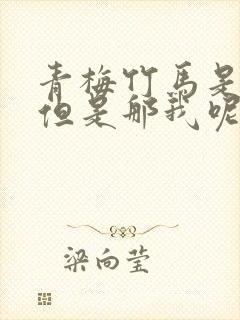 青梅竹马是
但是那我呢
梁向莹